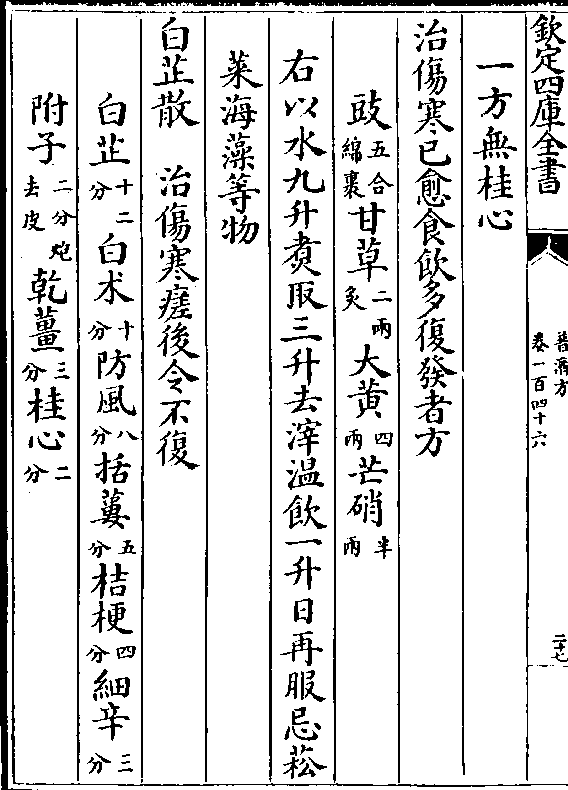 欽定四庫全書
普濟方
卷一百四十六
二十七
一方無桂心
治傷寒已愈食飲多復發者方
豉五合綿裹甘草二兩炙大黄四兩芒硝半兩
右以水九升煑取三升去滓温飲一升日再服忌菘
菜海藻等物
白芷散　治傷寒瘥後令不復
白芷十二分白术十分防風八分括蔞五分桔梗四分細辛三分
附子二分炮去皮乾薑三分桂心二分